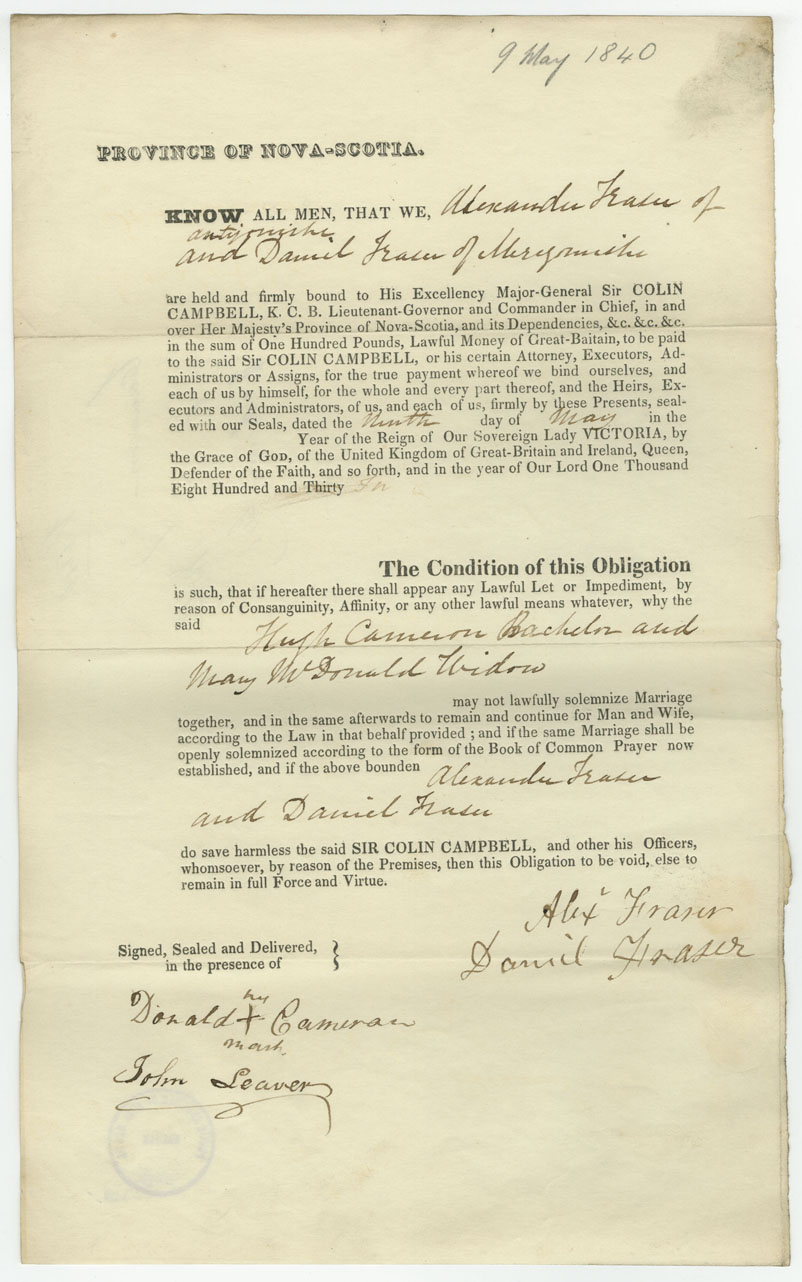 9 May 1840
PROVINCE OF NOVA-SCOTIA.
KNOW ALL MEN, THAT WE, Alexander Fraser of
antigonishe
and Daniel Fraser of Merigomishe
are held and firmly bound to His Excellency Major-General Sir COLIN
CAMPBELL, K. C. B. Lieutenant-Governor and Commander in Chief, in and
over Her Majesty's Province of Nova-Scotia, and its Dependencies, &c. &c. &c.
in the sum of One Hundred Pounds, Lawful Money of Great-Baitain, to be paid
to the said Sir COLIN CAMPBELL, or his certain Attorney, Executors, Ad-
ministrators or Assigns, for the true payment whereof we bind ourselves, and
each of us by himself, for the whole and every part thereof, and the Heirs, Ex-
ecutors and Administrators, of us, and each of us, firmly by these Presents, seal-
ed with our Seals, dated the Ninth day of May in the
Year of the Reign of Our Sovereign Lady VICTORIA, by
the Grace of GOD, of the United Kingdom of Great-Britain and Ireland, Queen,
Defender of the Faith, and so forth, and in the year of Our Lord One Thousand
Eight Hundred and Thirty
The Condition of this Obligation
is such, that if hereafter there shall appear any Lawful Let or Impediment, by
reason of Consanguinity, Affinity, or any other lawful means whatever, why the
said Hugh Cameron Bachelor and
Mary McDonald Widow
may not lawfully solemnize Marriage
together, and in the same afterwards to remain and continue for Man and Wife,
according to the Law in that behalf provided ; and if the same Marriage shall be
openly solemnized according to the form of the Book of Common Prayer now
established, and if the above bounden Alexander Fraser
and Daniel Fraser
do save harmless the said SIR COLIN CAMPBELL, and other his Officers,
whomsoever, by reason of the Premises, then this Obligation to be void, else to
remain in full Force and Virtue.
Alexr Fraser
Daniel Fraser
Signed, Sealed and Delivered, }
in the presence of
his
Donald + Cameron
mark
John Leaver